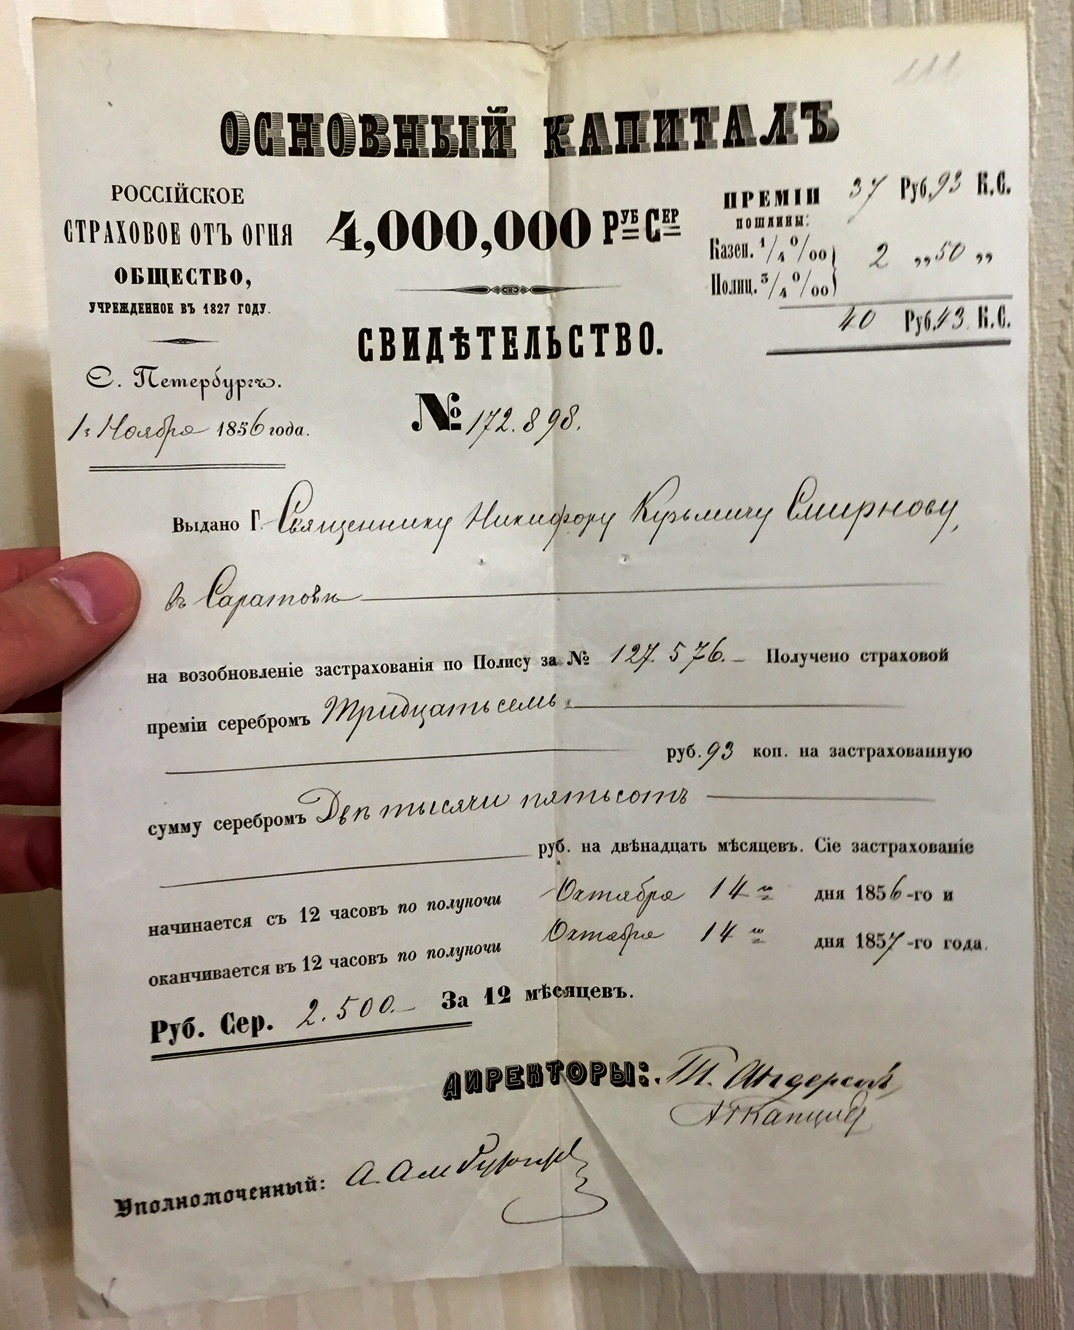 111
ОСНОВНЫЙ КАПИТАЛЪ
РОССІЙСКОЕ
СТРАХОВОЕ ОТЪ ОГНЯ
ОБЩЕСТВО,
УЧРЕЖДЕННОЕ ВЪ 1827 ГОДУ.
С. Петербургъ.
Ноября 1856 года.
4,000,000 РУБ СЕР
СВИДѢТЕЛЬСТВО.
№ 172.898.
ПРЕМІИ 37 Руб. 93 К.С.
ПОШЛИНЫ:
Казен. 1/4 0/00
Полиц. 3/4 0/00 } 2 „ 50 „
40 Руб. 43 К.С.
Выдано Г. Священнику Никифору Кузьмичу Смирнову,
въ Саратовѣ
на возобновленіе застрахованія по Полису за № 127.576. Получено страховой
преміи серебромъ Тридцать семь
руб. 93 коп. на застрахованную
сумму серебромъ Двѣ тысячи пятьсотъ
руб. на двѣнадцать мѣсяцевъ. Сіе застрахованіе
начинается съ 12 часовъ по полуночи Октября 14 дня 1856-го и
оканчивается въ 12 часовъ по полуночи Октября 14 дня 1857-го года.
Руб. Сер. 2.500. За 12 мѣсяцевъ.
ДИРЕКТОРЫ:
Уполномоченный: